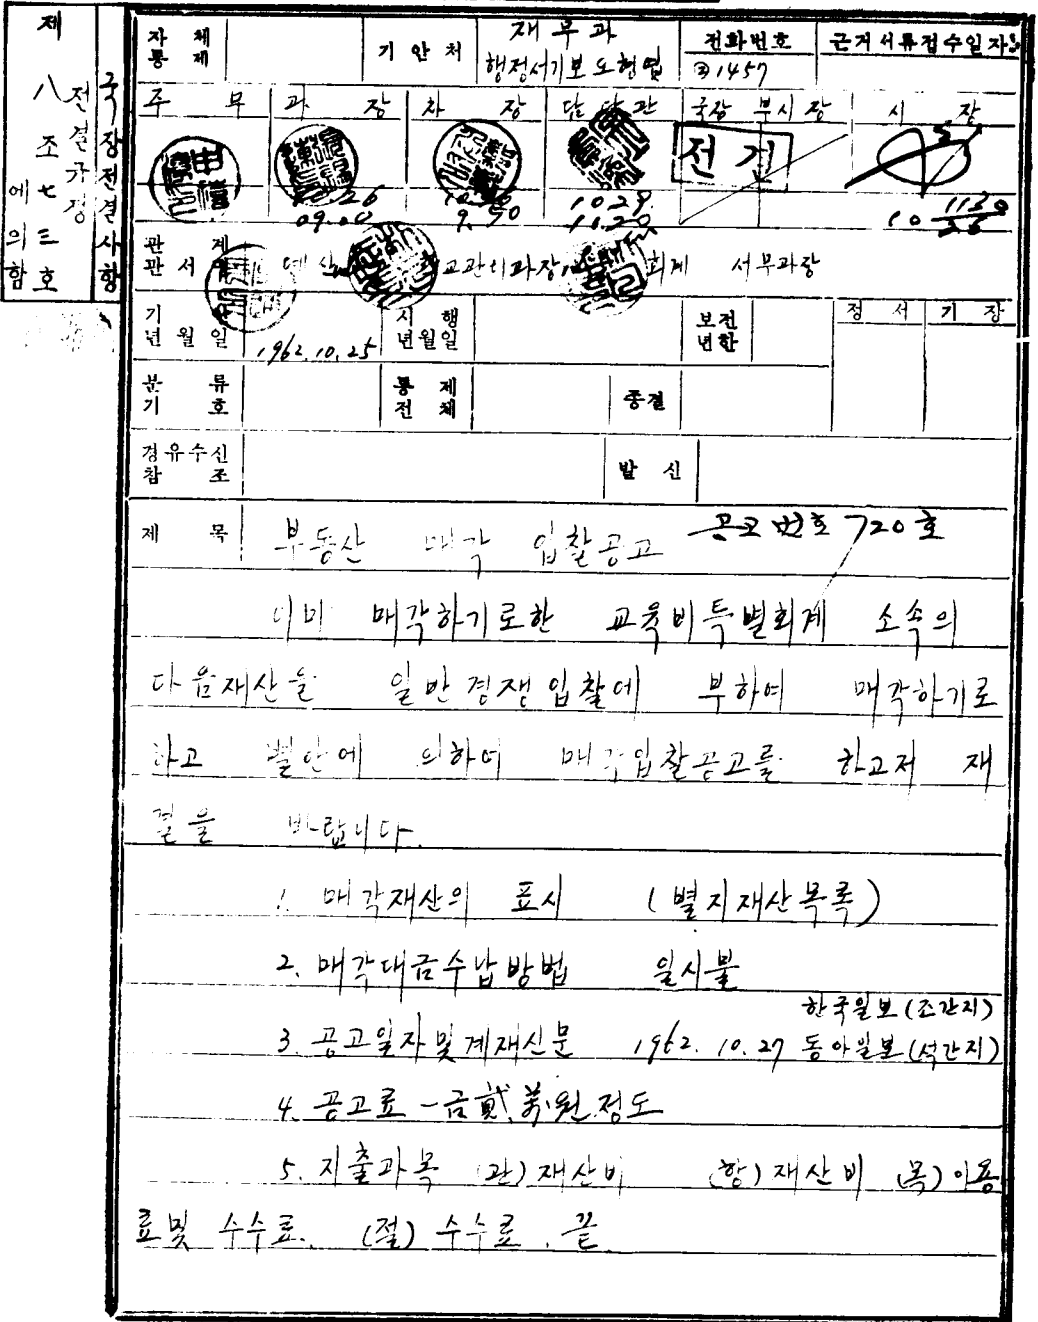 국장전결사항
전결규정
제八조七三호
에 의함
자체통제
기안처
재무과
행정서기보 도현엽
전화번호
③1457
근거서류접수일자
주무 과장 차장 담당관 국장 부시장 시장
전결
26
09.00
9.50
10.29
11.20
10
관계관서
회계
서무과장
기안년월일
1962.10.25
시행년월일
보존년한
정서
기장
분류기호
통제
전체
종결
경유수신참조
발신
제목
부동산 매각 입찰공고 공고번호 720호
이미 매각하기로한 교육비특별회계 소속의
다음재산을 일반경쟁입찰에 부하여 매각하기로
하고 별안에 의하여 매각입찰공고를 하고저 재
결을 바랍니다.
1. 매각재산의 표시 (별지재산목록)
2. 매각대금수납방법 일시불
한국일보(조간지)
3. 공고일자및게재신문 1962. 10. 27 동아일보(석간지)
4. 공고료 一金貳萬원정도
5. 지출과목 (관)재산비 (항)재산비 (목)이용
료및 수수료. (절)수수료. 끝